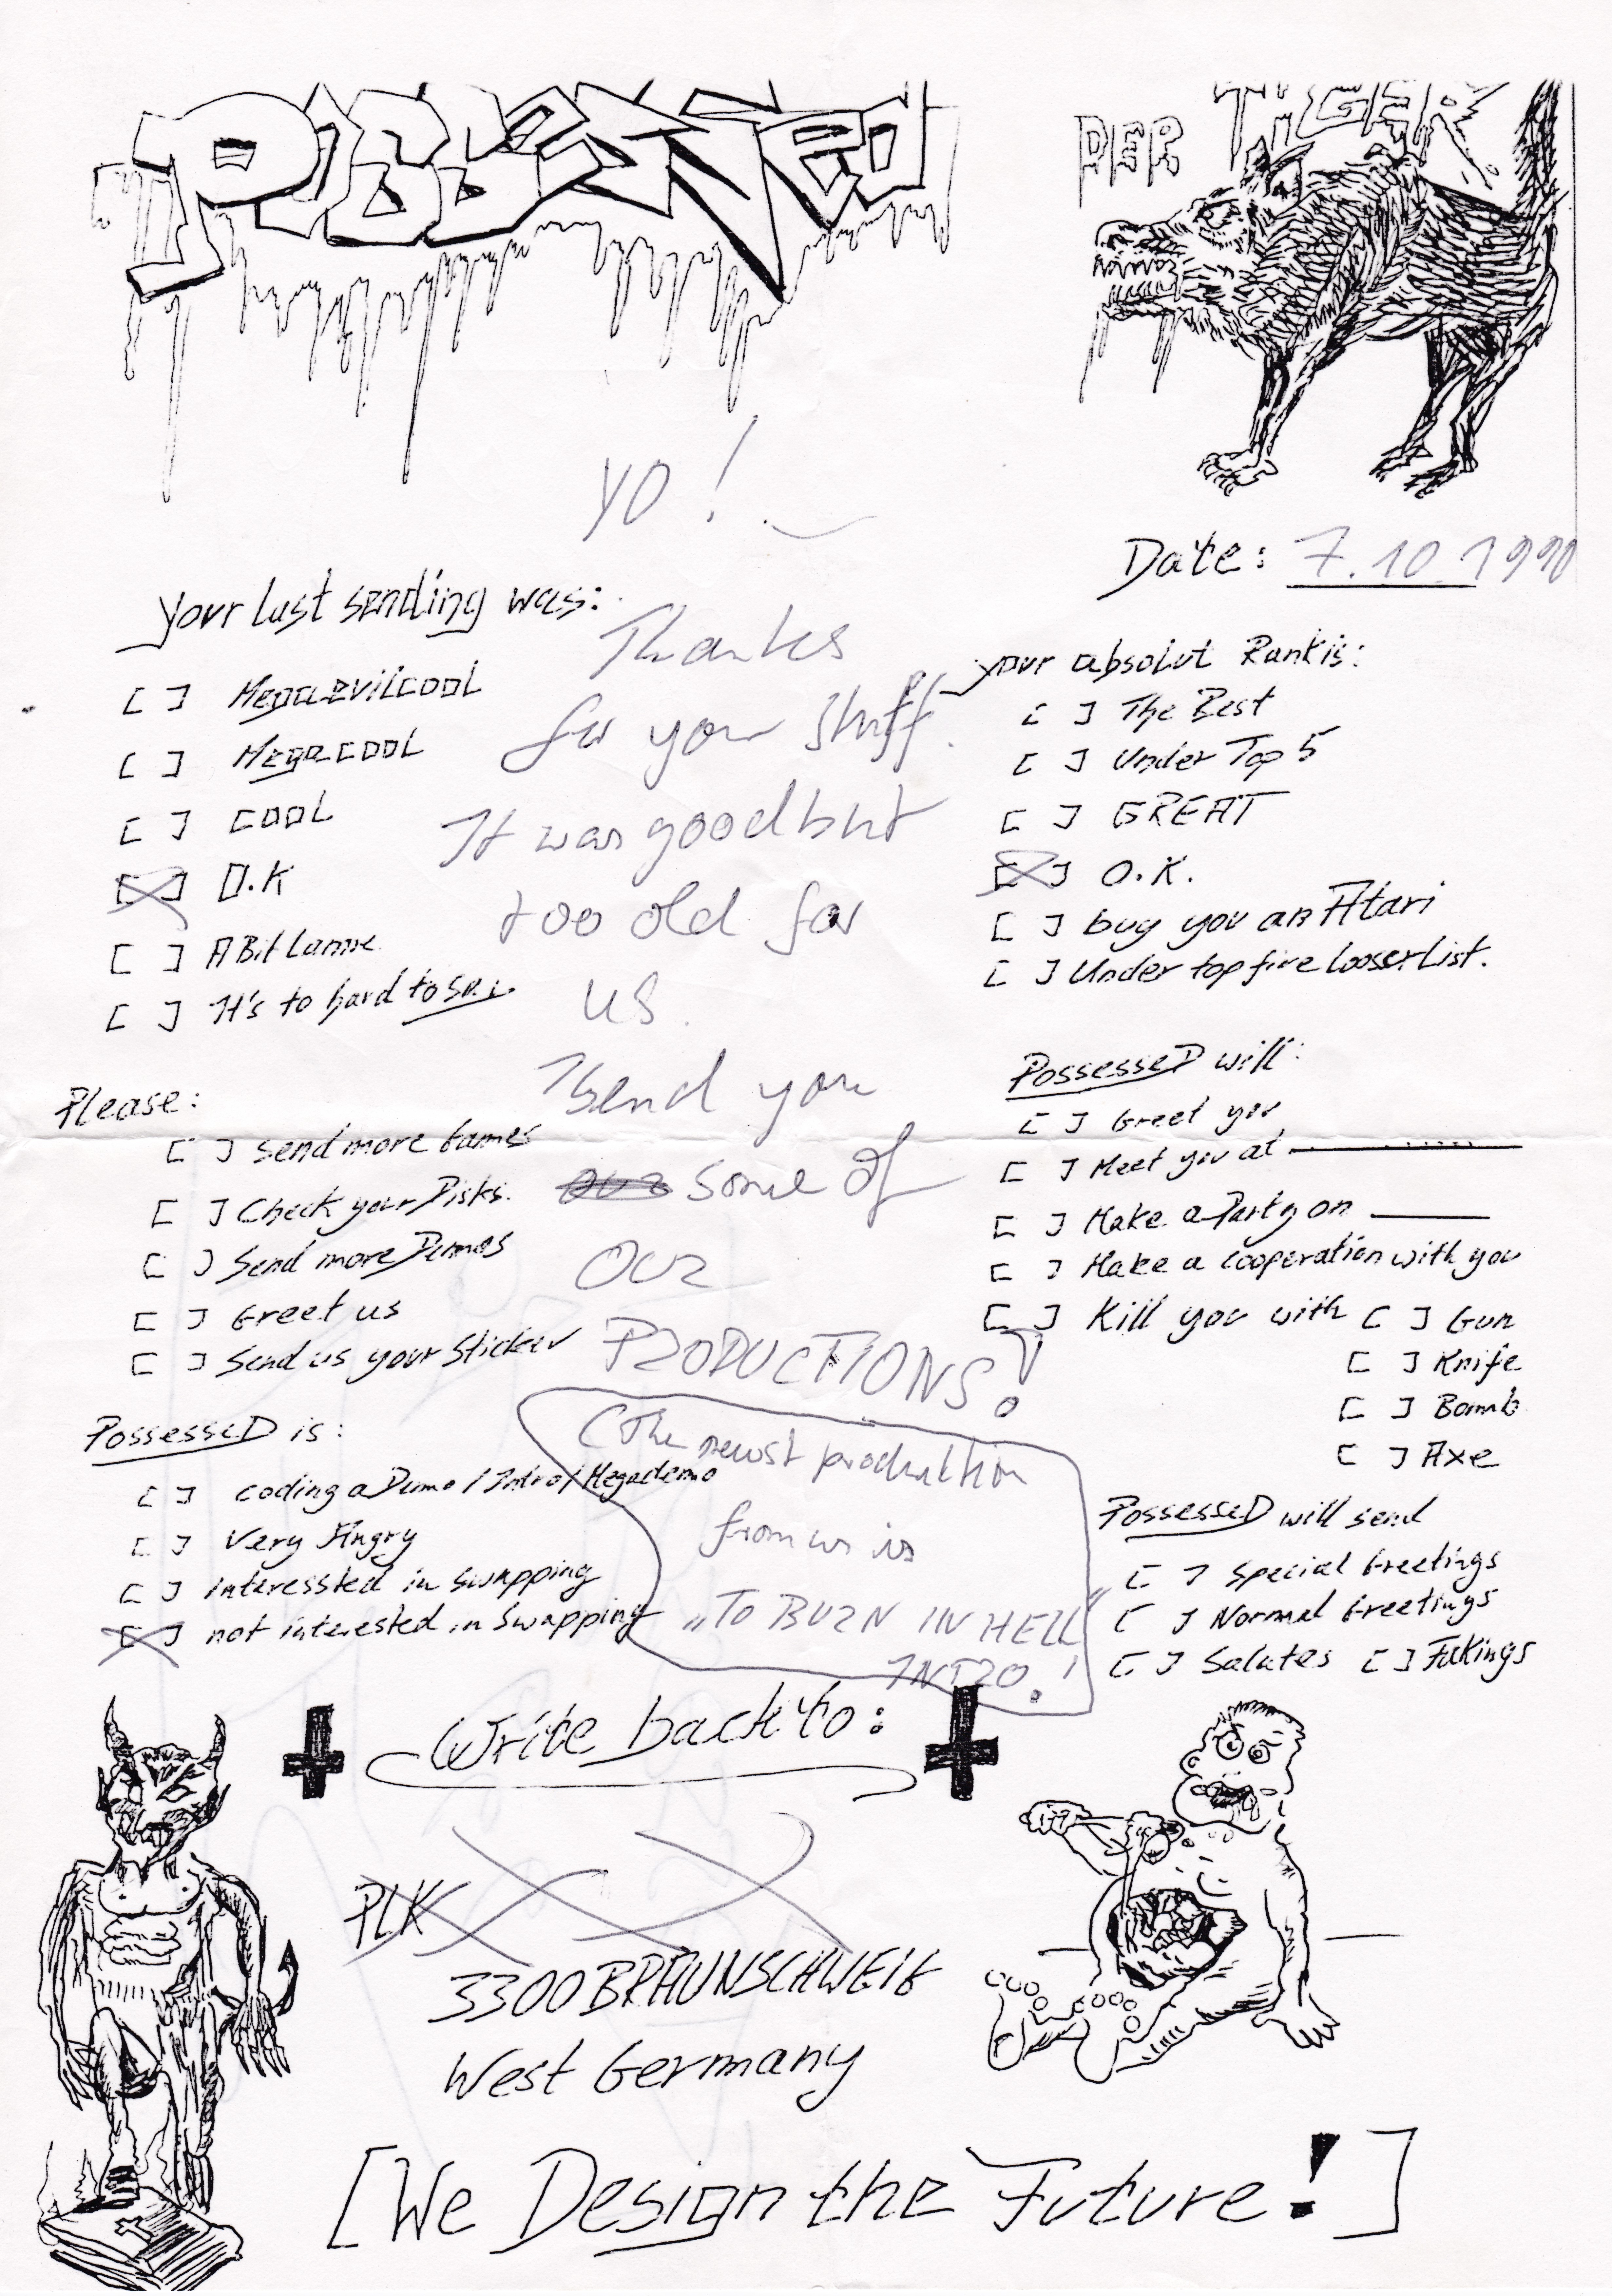 POSSESSED
DER TIGER
YO!
Date: 7.10.1990
your last sending was:
[ ] Megaevilcool
[ ] Megacool
[ ] COOL
[X] O.K
[ ] A Bit Lame
[ ] It's to hard to say.
Thanks
for your stuff.
It was good but
too old for
us.
I send you
some of
our
PRODUCTIONS!
(The newst production
from us is
„TO BURN IN HELL“
INTRO!
your absolut Rank is:
[ ] The Best
[ ] Under Top 5
[ ] GREAT
[X] O.K.
[ ] buy you an Atari
[ ] Under top five looser List.
Please:
[ ] send more Games
[ ] Check your Disks.
[ ] Send more Demos
[ ] Greet us
[ ] Send us your Sticker
PossesseD will:
[ ] Greet you
[ ] Meet you at
[ ] Make a Party on
[ ] Make a cooperation with you
[ ] Kill you with [ ] Gun
[ ] Knife
[ ] Bomb
[ ] Axe
PossesseD is:
[ ] coding a Demo / Intro / Megademo
[ ] Very Angry
[ ] interessted in Swapping
[X] not interested in Swapping
PossesseD will send
[ ] Special Greetings
[ ] Normal Greetings
[ ] Salutes [ ] Fuckings
Write back to:
PLK
3300 BRAUNSCHWEIG
West Germany
[We Design the Future!]